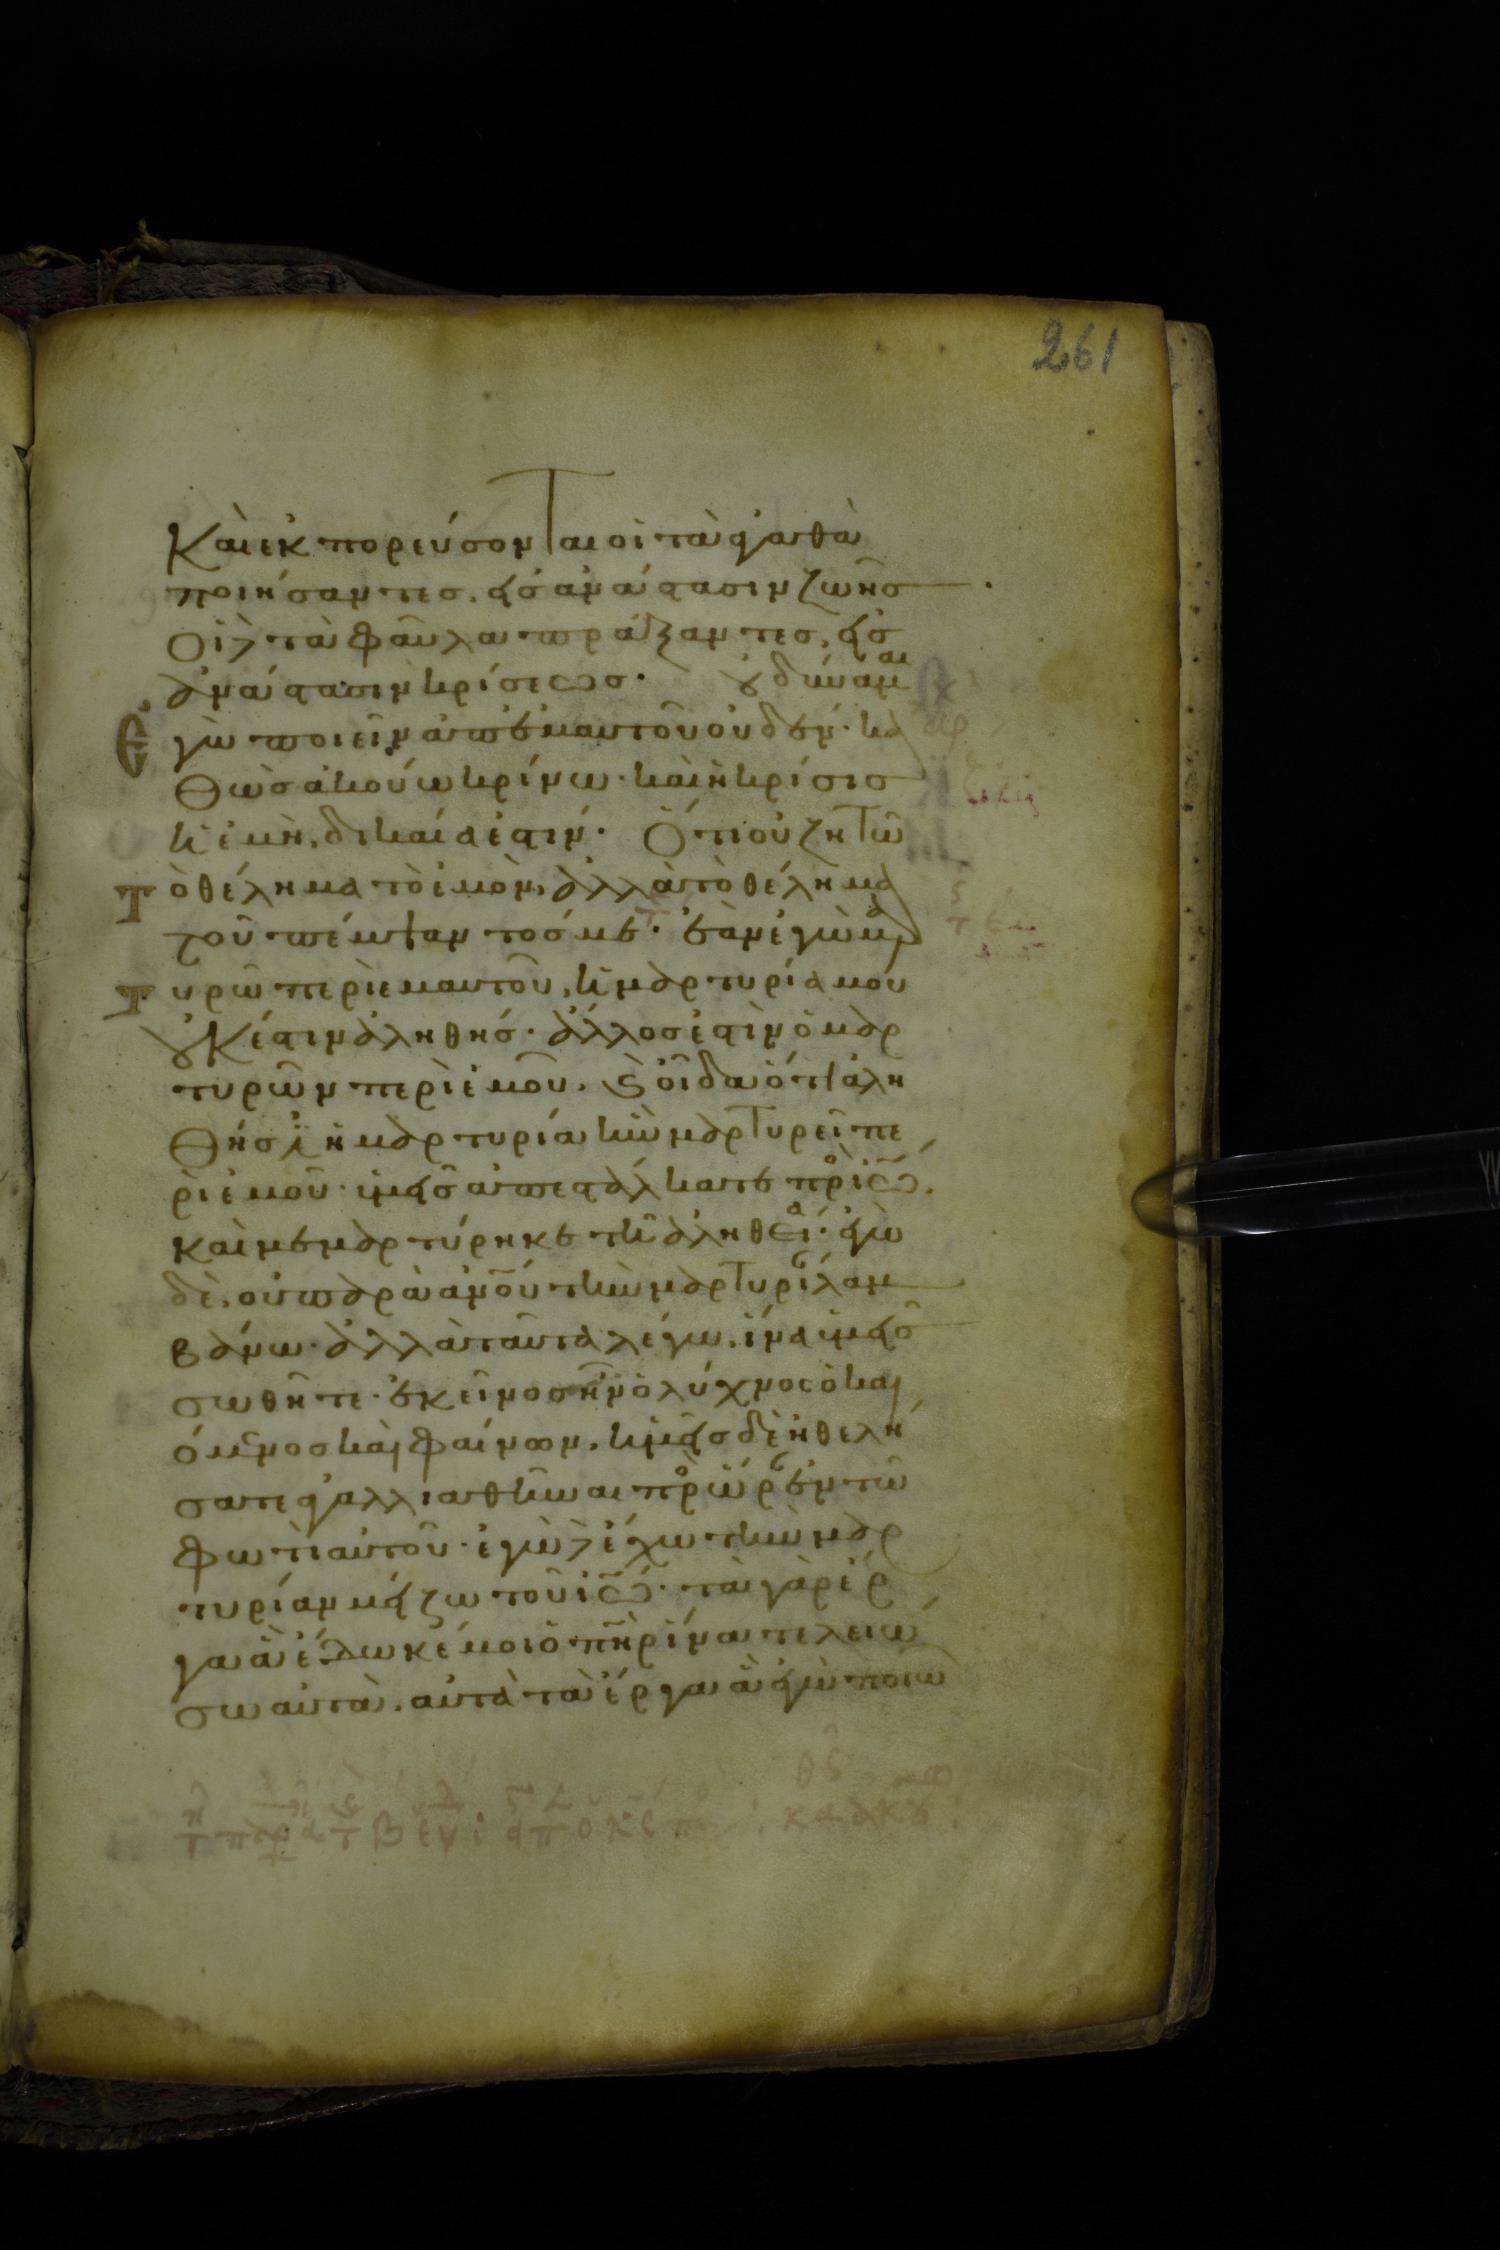 261
Καὶ ἐκπορεύσονται οἱ τὰ ἀγαθὰ
ποιήσαντες, εἰς ἀνάστασιν ζωῆς.
Οἱ δὲ τὰ φαῦλα πράξαντες, εἰς
ἀνάστασιν κρίσεως. οὐ δύναμαι
Ἐγὼ ποιεῖν ἀπ' ἐμαυτοῦ οὐδέν· κα
θὼς ἀκούω κρίνω· καὶ ἡ κρίσις
ἡ ἐμὴ, δικαία ἐστιν. Ὅτι οὐ ζητῶ
Τὸ θέλημα τὸ ἐμὸν, ἀλλὰ τὸ θέλημα
τοῦ πέμψαντος με. ἐὰν ἐγὼ μαρ
Τυρῶ περὶ ἐμαυτοῦ, ἡ μαρτυρία μου
οὐκ ἔστιν ἀληθής. ἄλλος ἐστὶν ὁ μαρ
τυρῶν περὶ ἐμοῦ. ϗ οἶδα ὅτι ἀλη
θής ἐστιν ἡ μαρτυρία ἣν μαρτυρεῖ πε
ρὶ ἐμοῦ· ὑμεῖς ἀπεστάλκατε πρὸς ἰω.
καὶ μεμαρτύρηκε τῇ ἀληθείᾳ· ἐγὼ
δὲ, οὐ παρὰ ἀνου τὴν μαρτυρίαν λαμ
βάνω· ἀλλὰ ταῦτα λέγω, ἵνα ὑμεῖς
σωθῆτε· ἐκεῖνος ἦν ὁ λύχνος ὁ και
όμενος καὶ φαίνων, ὑμεῖς δὲ ἠθελή
σατε ἀγαλλιαθῆναι πρὸς ὥραν ἐν τῶ
φωτὶ αὐτοῦ· ἐγὼ δὲ ἔχω τὴν μαρ
τυρίαν μείζω τοῦ ἰω· τὰ γὰρ ἔρ
γα ἃ ἔδωκέ μοι ὁ πηρ ἵνα τελειώ
σω αὐτὰ, αὐτὰ τὰ ἔργα ἃ ἐγὼ ποιῶ